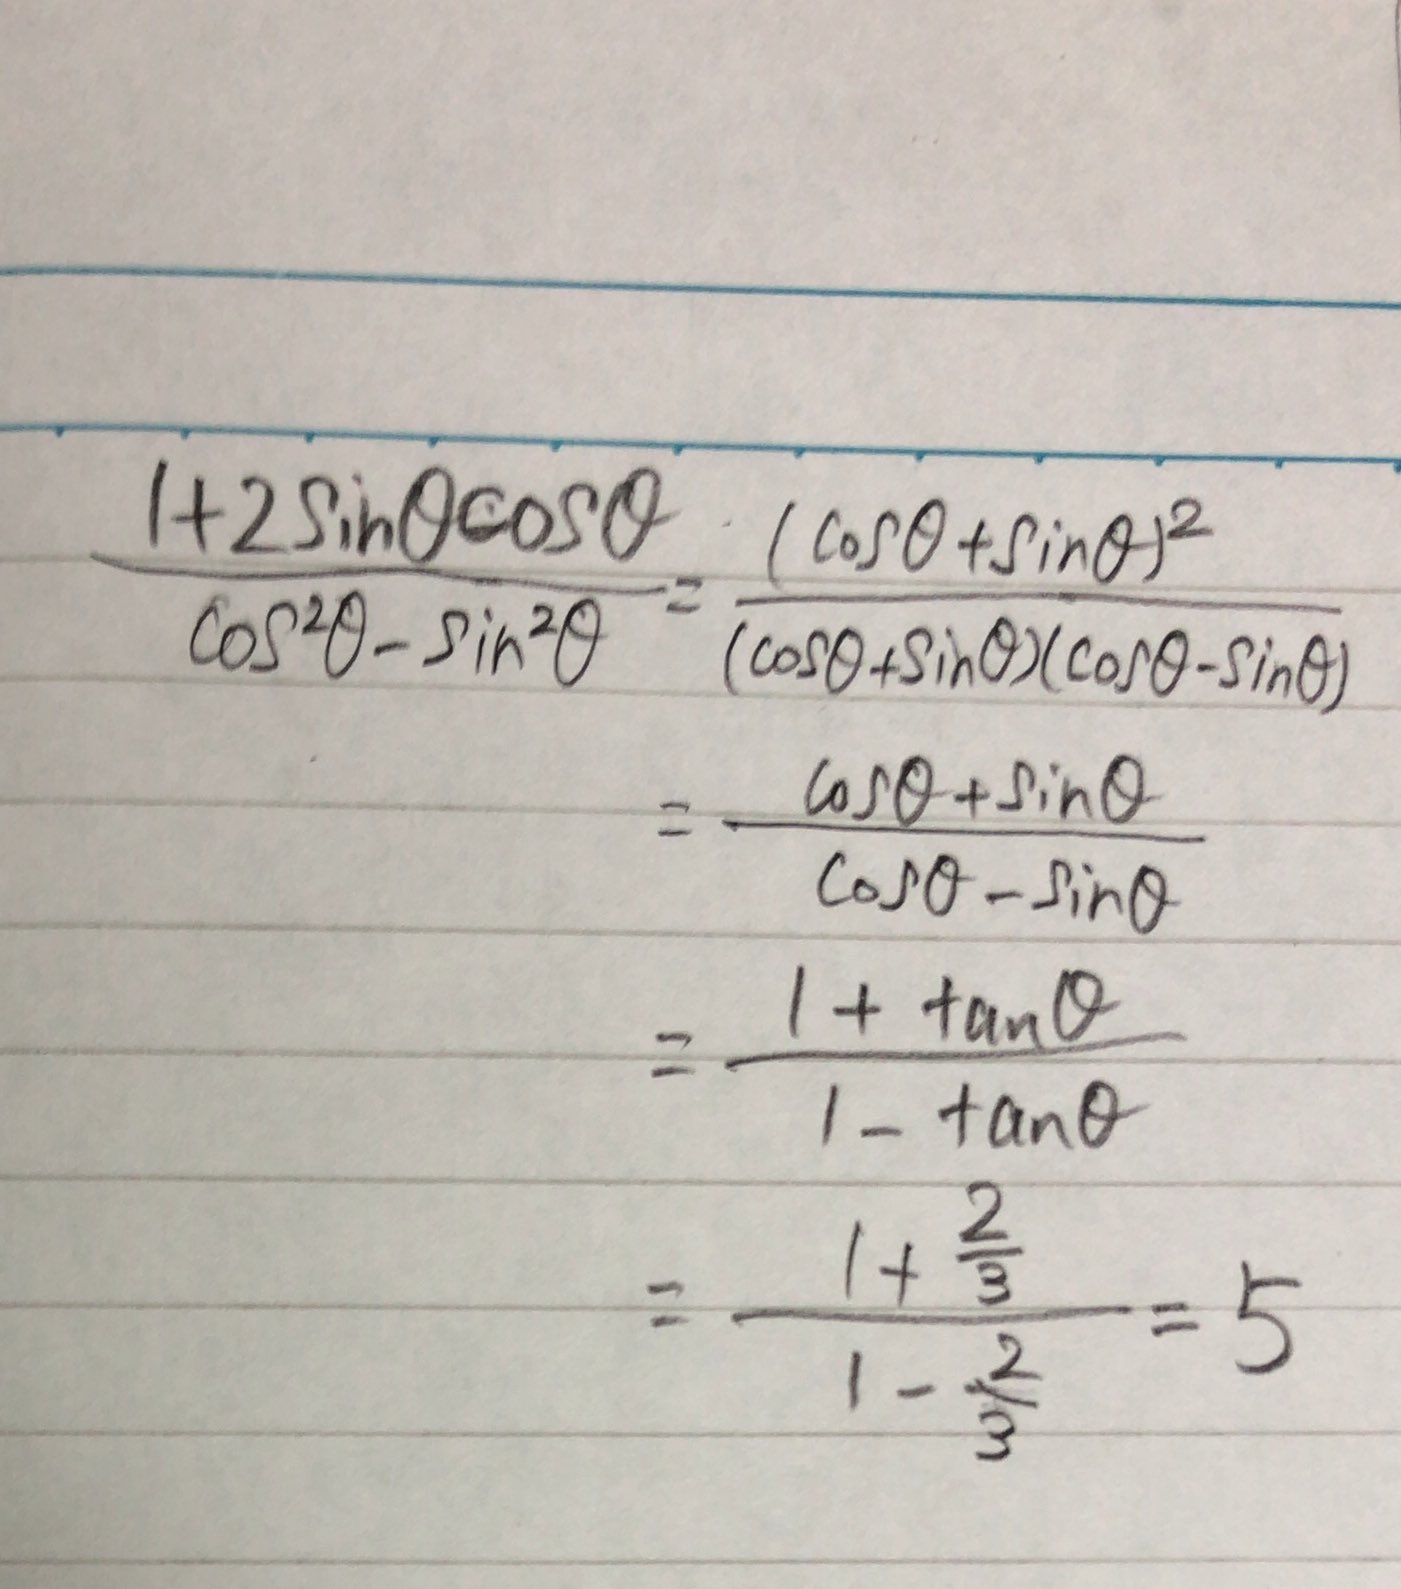 (1+2sinθcosθ)/(cos²θ-sin²θ) = (cosθ+sinθ)²/((cosθ+sinθ)(cosθ-sinθ))
= (cosθ+sinθ)/(cosθ-sinθ)
= (1+tanθ)/(1-tanθ)
= (1+2/3)/(1-2/3) = 5